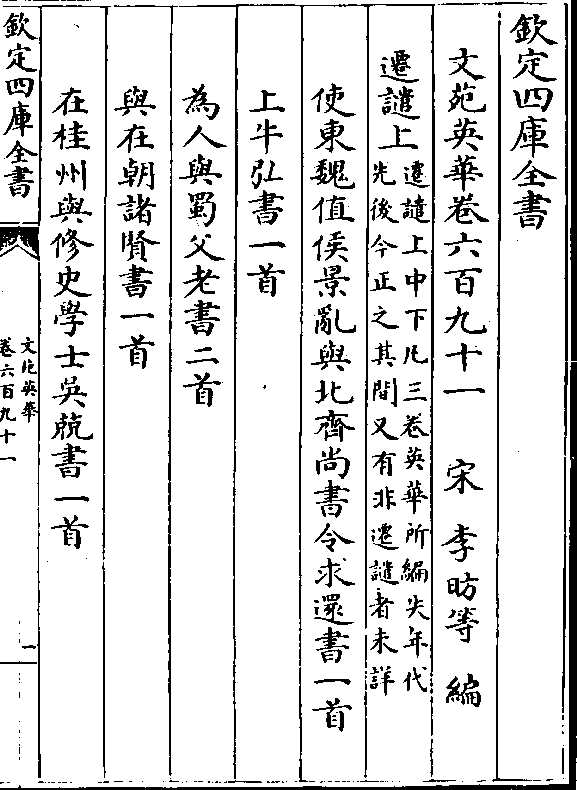 欽定四庫全書
文苑英華卷六百九十一　宋　李昉等　編
遷謫上
遷謫上中下凡三卷英華所編失年代
先後今正之其間又有非遷謫者未詳
使東魏值侯景亂與北齊尚書令求還書一首
上牛弘書一首
為人與蜀父老書二首
與在朝諸賢書一首
在桂州與修史學士吳兢書一首
欽定四庫全書
文苑英華
卷六百九十一
一